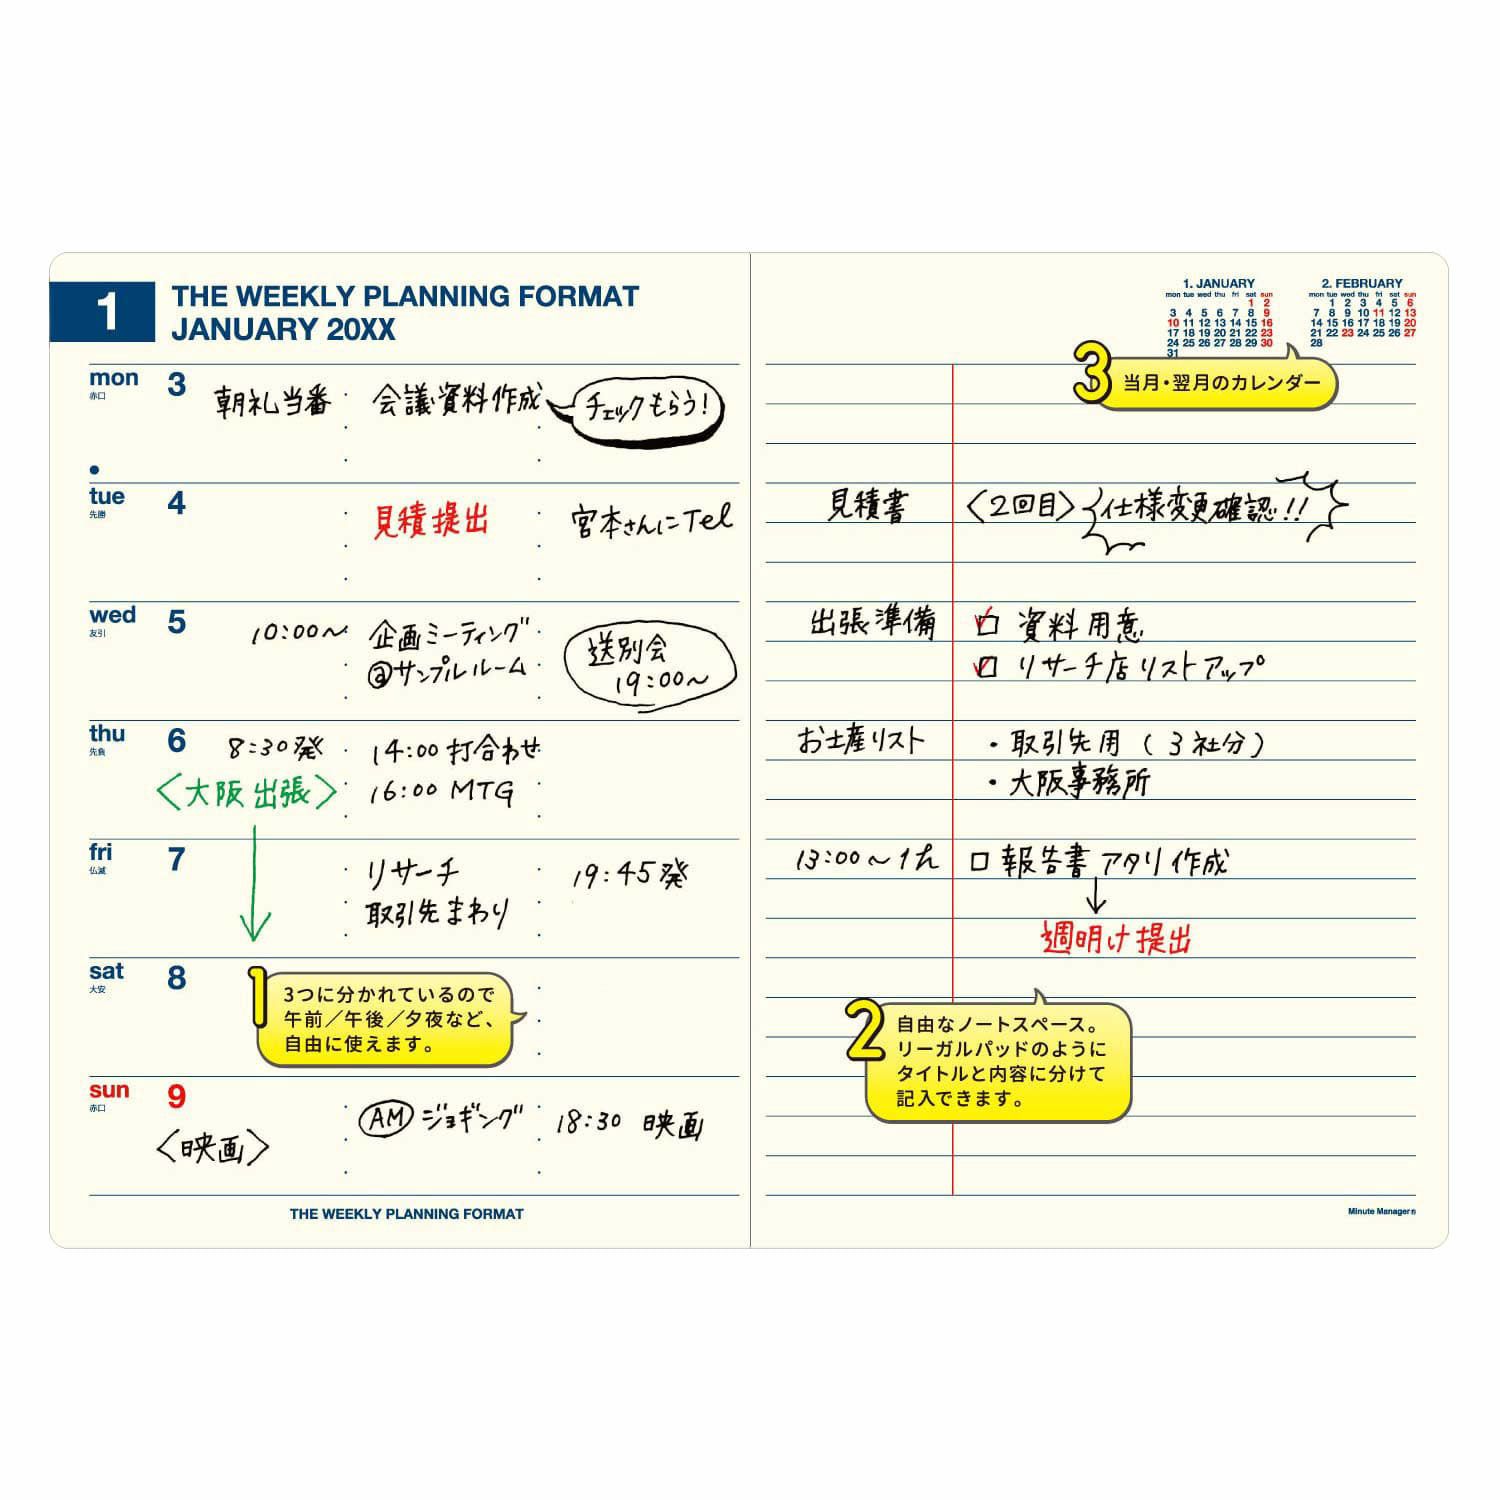 1
THE WEEKLY PLANNING FORMAT
JANUARY 20XX
mon 3 朝礼当番 会議資料作成 チェックもらう!
赤口
tue 4 見積提出 宮本さんにTel
先勝
wed 5 10:00〜 企画ミーティング 送別会
友引 @サンプルルーム 19:00〜
thu 6 8:30発 14:00 打合わせ
先負 〈大阪出張〉 16:00 MTG
fri 7 リサーチ 19:45発
仏滅 取引先まわり
sat 8
大安
1
3つに分かれているので
午前/午後/夕夜など、
自由に使えます。
sun 9 AM ジョギング 18:30 映画
赤口
〈映画〉
THE WEEKLY PLANNING FORMAT
1. JANUARY
mon tue wed thu fri sat sun
1 2
3 4 5 6 7 8 9
10 11 12 13 14 15 16
17 18 19 20 21 22 23
24 25 26 27 28 29 30
31
2. FEBRUARY
mon tue wed thu fri sat sun
1 2 3 4 5 6
7 8 9 10 11 12 13
14 15 16 17 18 19 20
21 22 23 24 25 26 27
28
3 当月・翌月のカレンダー
見積書 〈2回目〉 仕様変更確認!!
出張準備 資料用意
リサーチ店リストアップ
お土産リスト ・取引先用(3社分)
・大阪事務所
13:00〜1h 報告書アタリ作成
週明け提出
2
自由なノートスペース。
リーガルパッドのように
タイトルと内容に分けて
記入できます。
Minute Manager